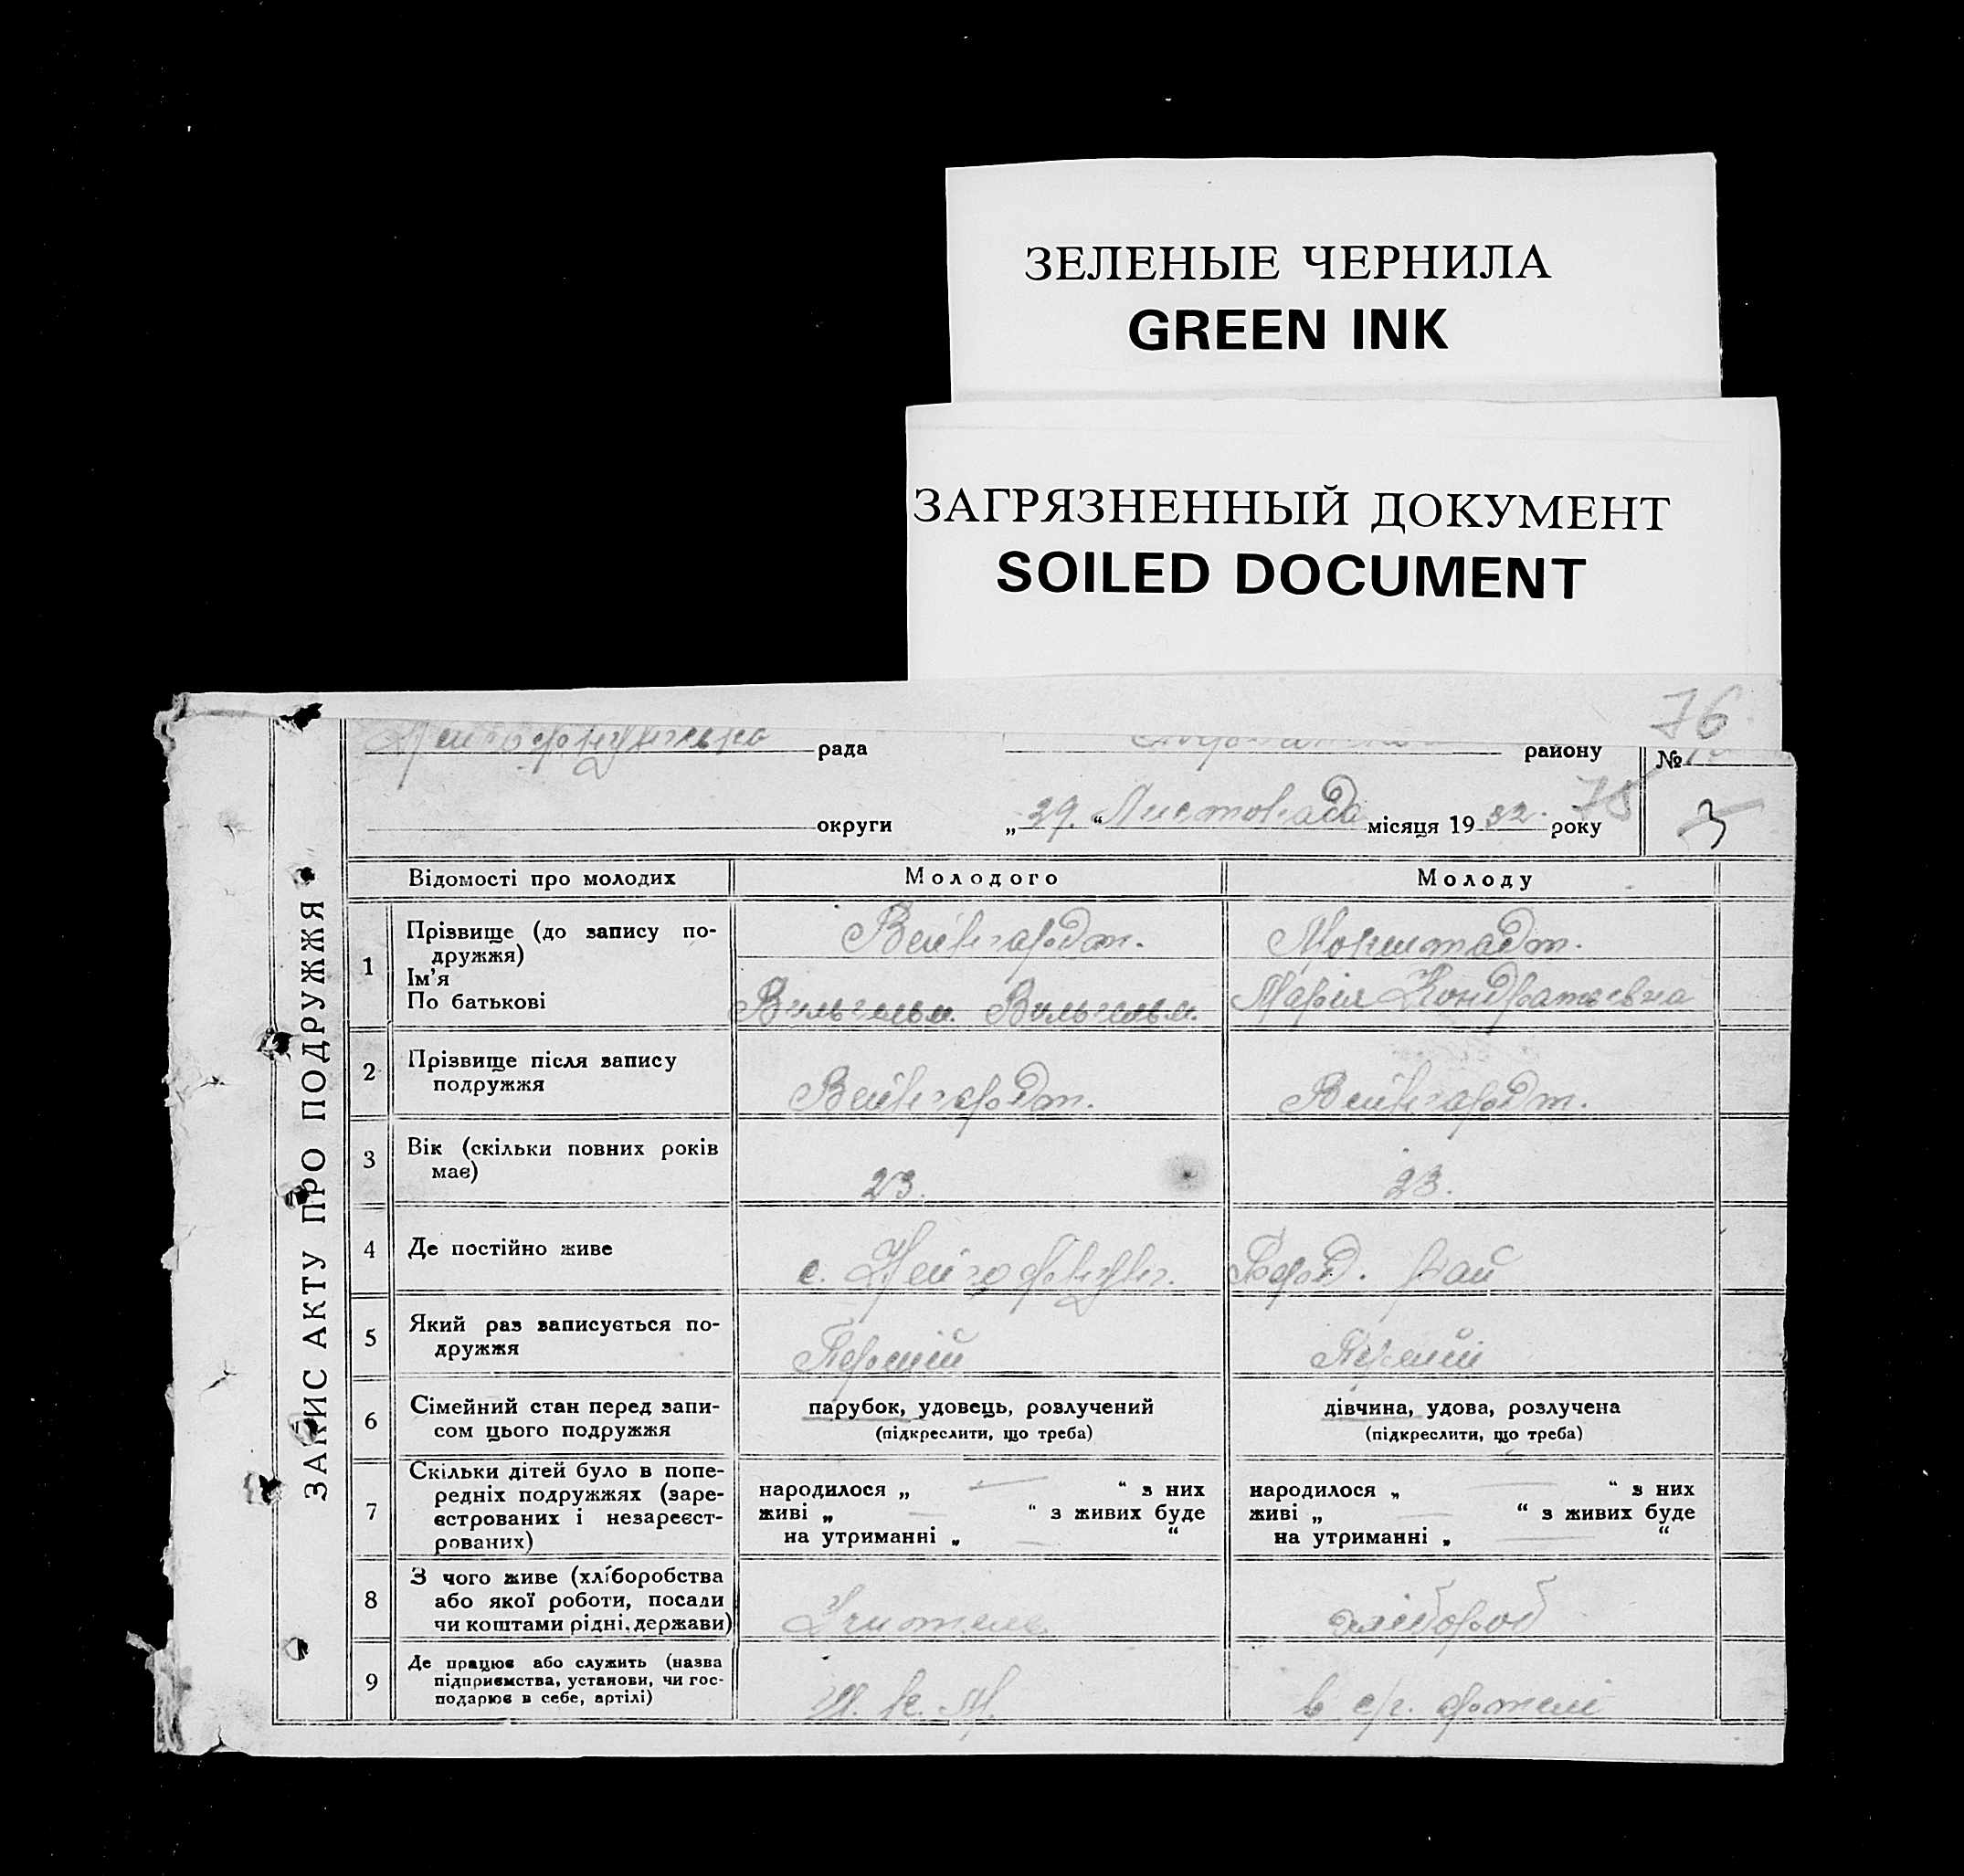 ЗЕЛЕНЫЕ ЧЕРНИЛА
GREEN INK
ЗАГРЯЗНЕННЫЙ ДОКУМЕНТ
SOILED DOCUMENT
76
рада району №
округи „29.“ Листопада місяця 1932. року 75 3
ЗАПИС АКТУ ПРО ПОДРУЖЖЯ
Відомості про молодих Молодого Молоду
1 Прізвище (до запису по-
дружжя) Вейнгардт. Морштадт.
Ім'я
По батькові Вильгельм Вильгельм. Марія Кондратьевна
2 Прізвище після запису
подружжя Вейнгардт. Вейнгардт.
3 Вік (скільки повних років
має) 23. 23.
4 Де постійно живе с. Нейгофнунг. рай
5 Який раз записується по-
дружжя Перший Перший
6 Сімейний стан перед запи- парубок, удовець, розлучений дівчина, удова, розлучена
сом цього подружжя (підкреслити, що треба) (підкреслити, що треба)
7 Скільки дітей було в попе-
редніх подружжях (заре- народилося „ “ з них народилося „ “ з них
єстрованих і незареєст- живі „ “ з живих буде живі „ “ з живих буде
рованих) на утриманні „ “ на утриманні „ “
8 З чого живе (хліборобства
або якої роботи, посади
чи коштами рідні, держави) Учитель хлібороб
9 Де працює або служить (назва
підприємства, установи, чи гос-
подарює в себе, артілі) Ш. К. М. в с/г. артелі